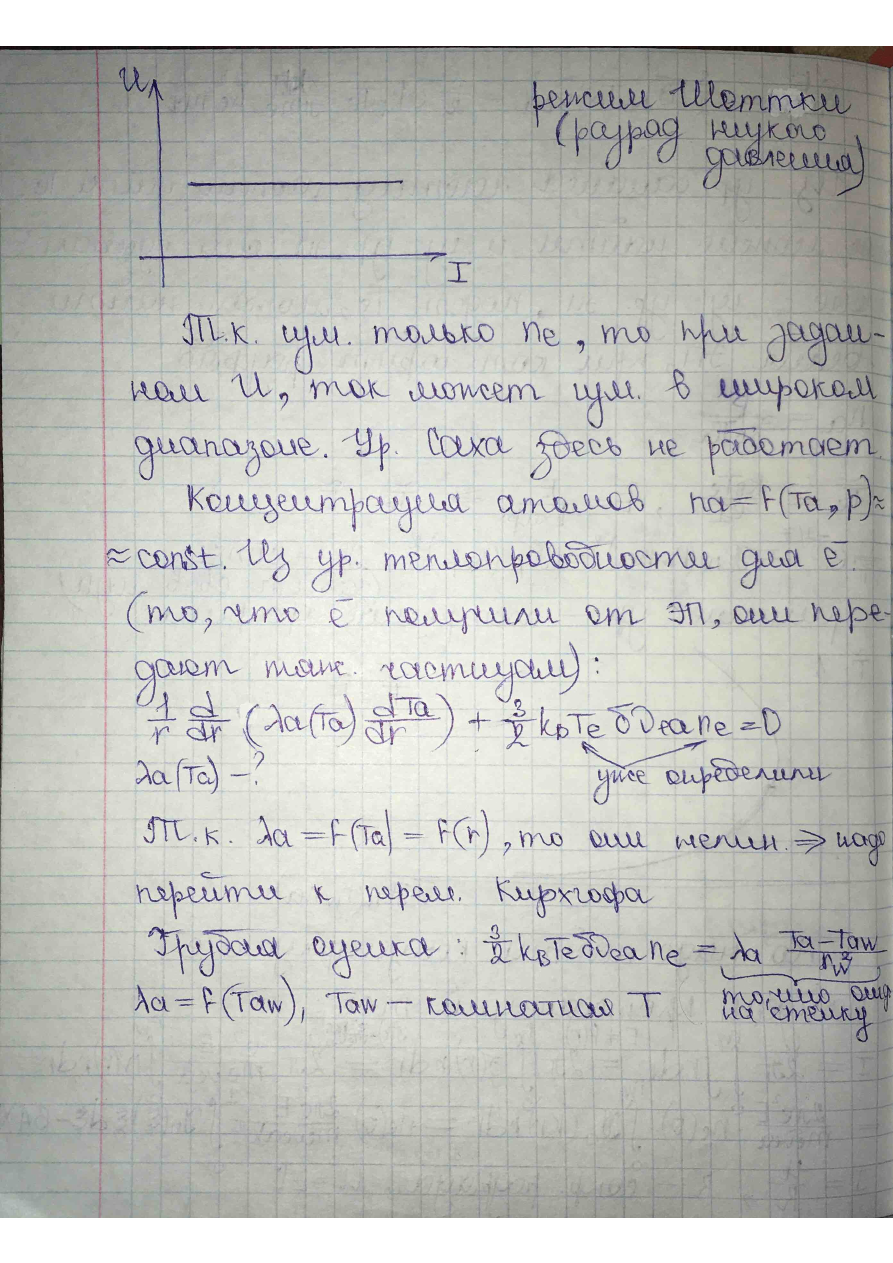 U
режим Шоттки
(разряд низкого
давления)
I
Т.к. изм. только ne, то при задан-
ном U, ток может изм. в широком
диапазоне. Ур. Саха здесь не работает.
Концентрация атомов na=f(Ta, p)≈
≈const. Из ур. теплопроводности для e⁻.
(то, что e⁻ получили от ЭП, они пере-
дают тяж. частицам):
1/r d/dr (λa(Ta) dTa/dr) + 3/2 kBTe δνea ne = 0
λa(Ta) – ?
уже определили
Т.к. λa = f(Ta) = f(r), то они нелин. ⇒ надо
перейти к перем. Кирхгофа
Грубая оценка: 3/2 kBTe δνea ne = λa (Ta–Taw)/rw²
λa = f(Taw), Taw – комнатная T
то, что
на стенку